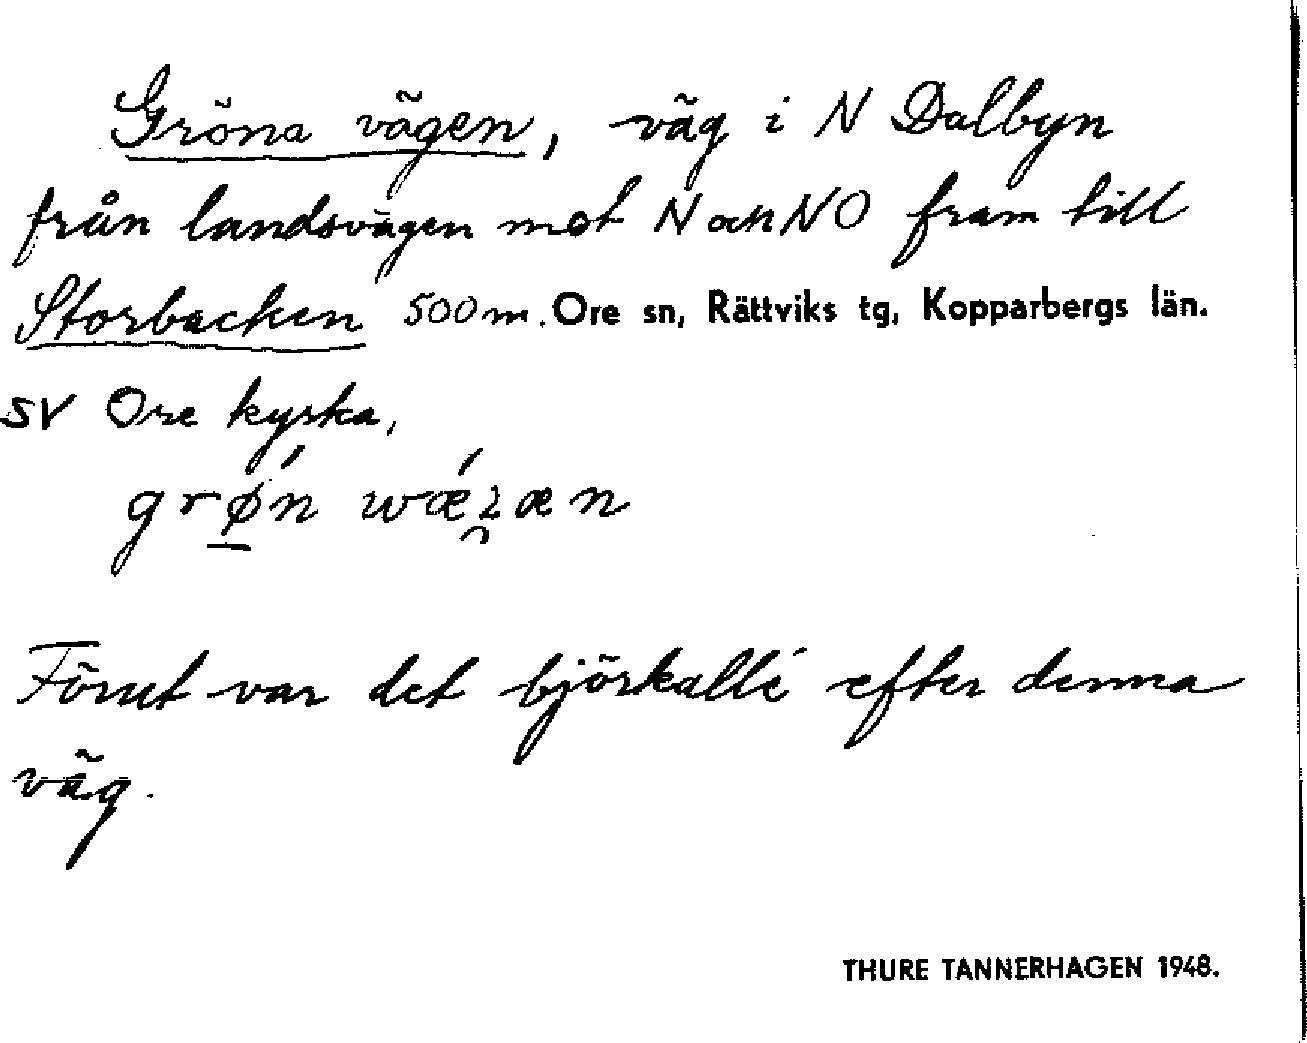 Gröna vägen, väg i N Dalbyn
från landsvägen mot N och NO fram till
Storbacken 500 m. Ore sn, Rättviks tg, Kopparbergs län.
SV Ore kyrka,
grǿn
Förut var det björkallé efter denna
väg.
THURE TANNERHAGEN 1948.